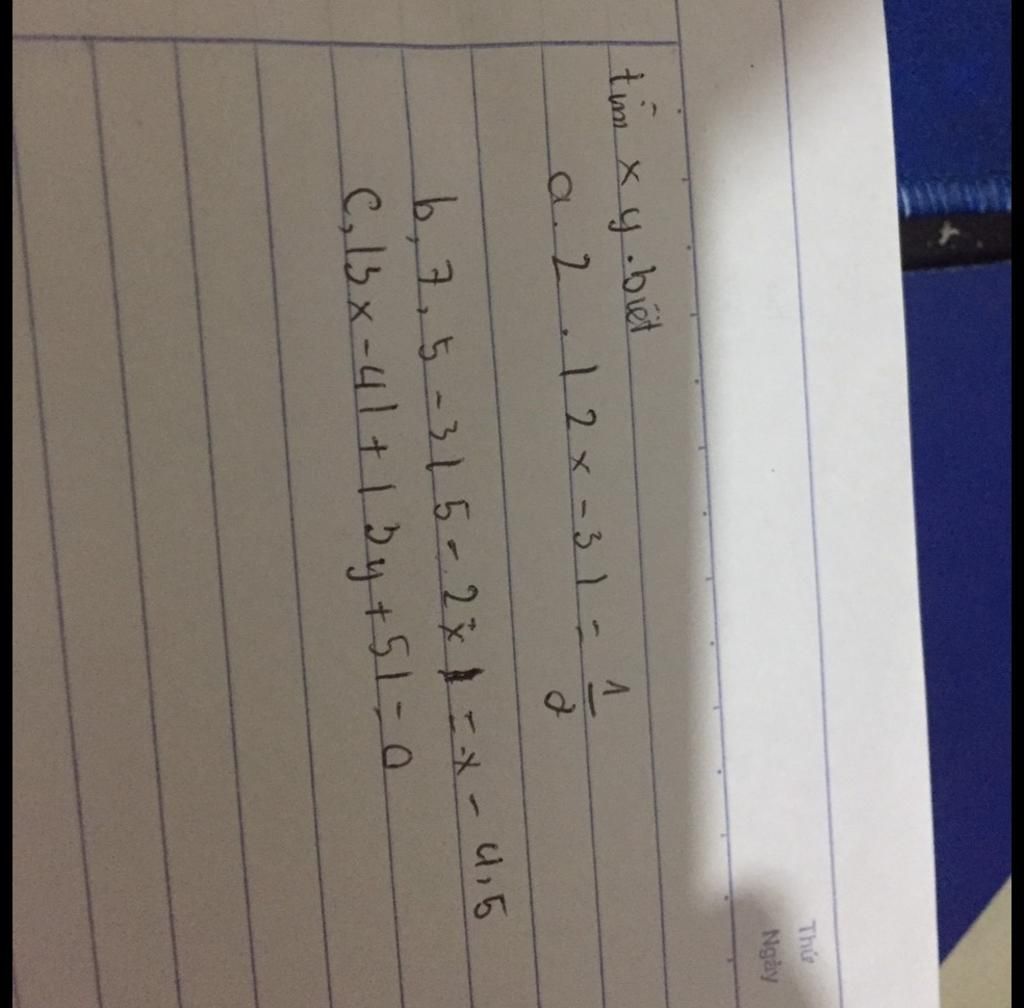 Thứ
Ngày
tìm x y. biết
a. 2 . | 2x - 3 | = 1/2
b, 7, 5 - 3 | 5 - 2x | = -x - 4,5
c, | 3x - 4 | + | 3y + 5 | = 0